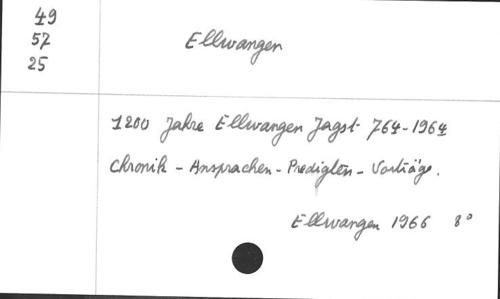 49
57
25
Ellwangen
1200 Jahre Ellwangen Jagst 764-1964
Chronik - Ansprachen - Predigten - Vorträge.
Ellwangen 1966 8°